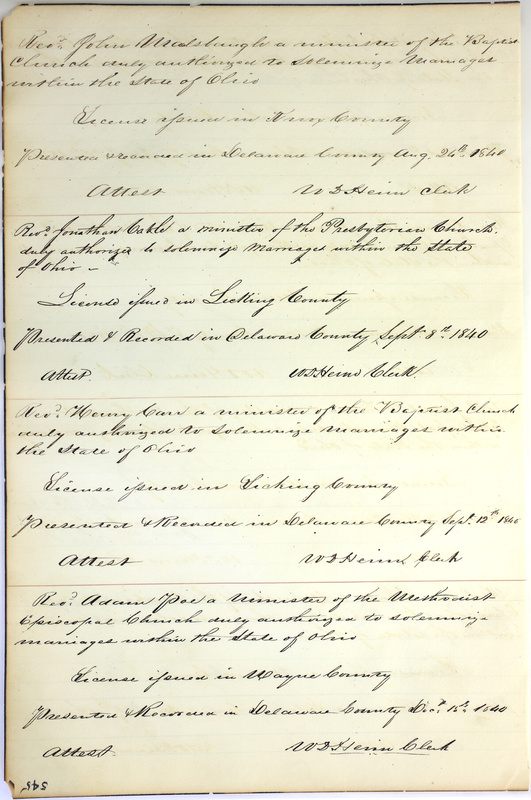 Revd. John Malsbaugh a minister of the Baptist
Church duly authorized to Solemnize Marriages
within the State of Ohio
License issued in Knox County
Presented & recorded in Delaware County Aug. 24th 1840
Attest W D Heim Clerk
Revd. Jonathan Cable a minister of the Presbyterian Church.
duly authorized to solemnize Marriages within the State
of Ohio –
License issued in Licking County
Presented & Recorded in Delaware County Sept 8th 1840
Attest. W D Heim Clerk.
Revd. Henry Carr a minister of the Baptist Church
duly authorized to Solemnize marriages within
the State of Ohio
License issued in Licking County
Presented & Recorded in Delaware County Sept. 12th 1840
Attest W D Heim Clerk
Revd. Adam Poe a Minister of the Methodist
Episcopal Church duly authorized to solemnize
marriages within the State of Ohio
License issued in Wayne County
Presented & Recorded in Delaware County Dec. 15th 1840
Attest. W D Heim Clerk
545